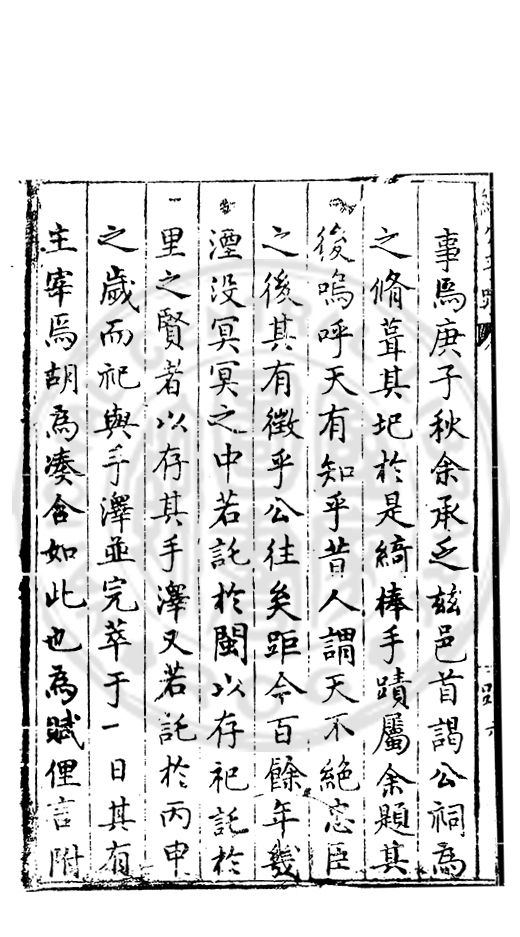 事焉庚子秋余承乏玆邑首謁公祠為
之脩葺其圮於是綺捧手蹟屬余題其
後嗚呼天有知乎昔人謂天不絕忠臣
之後其有徵乎公往矣距今百餘年幾
湮没冥冥之中若託於閩以存祀託於
里之賢者以存其手澤又若託於丙申
之歲而祀與手澤並完萃于一日其有
主宰焉胡為湊合如此也為賦俚言附